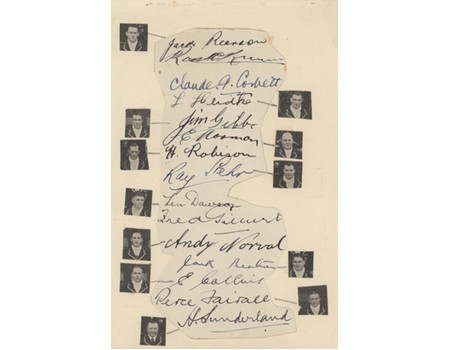 Jack Reardon
Ross McKinnon
Claude A. Corbett
L Heidke
Jim Gibbs
E Norman
H. Robison
Ray Stehr
Len Dawson
Fred Gilbert
Andy Norval
Jack Beaton
E Collins
Percy Fairall
H. Sunderland